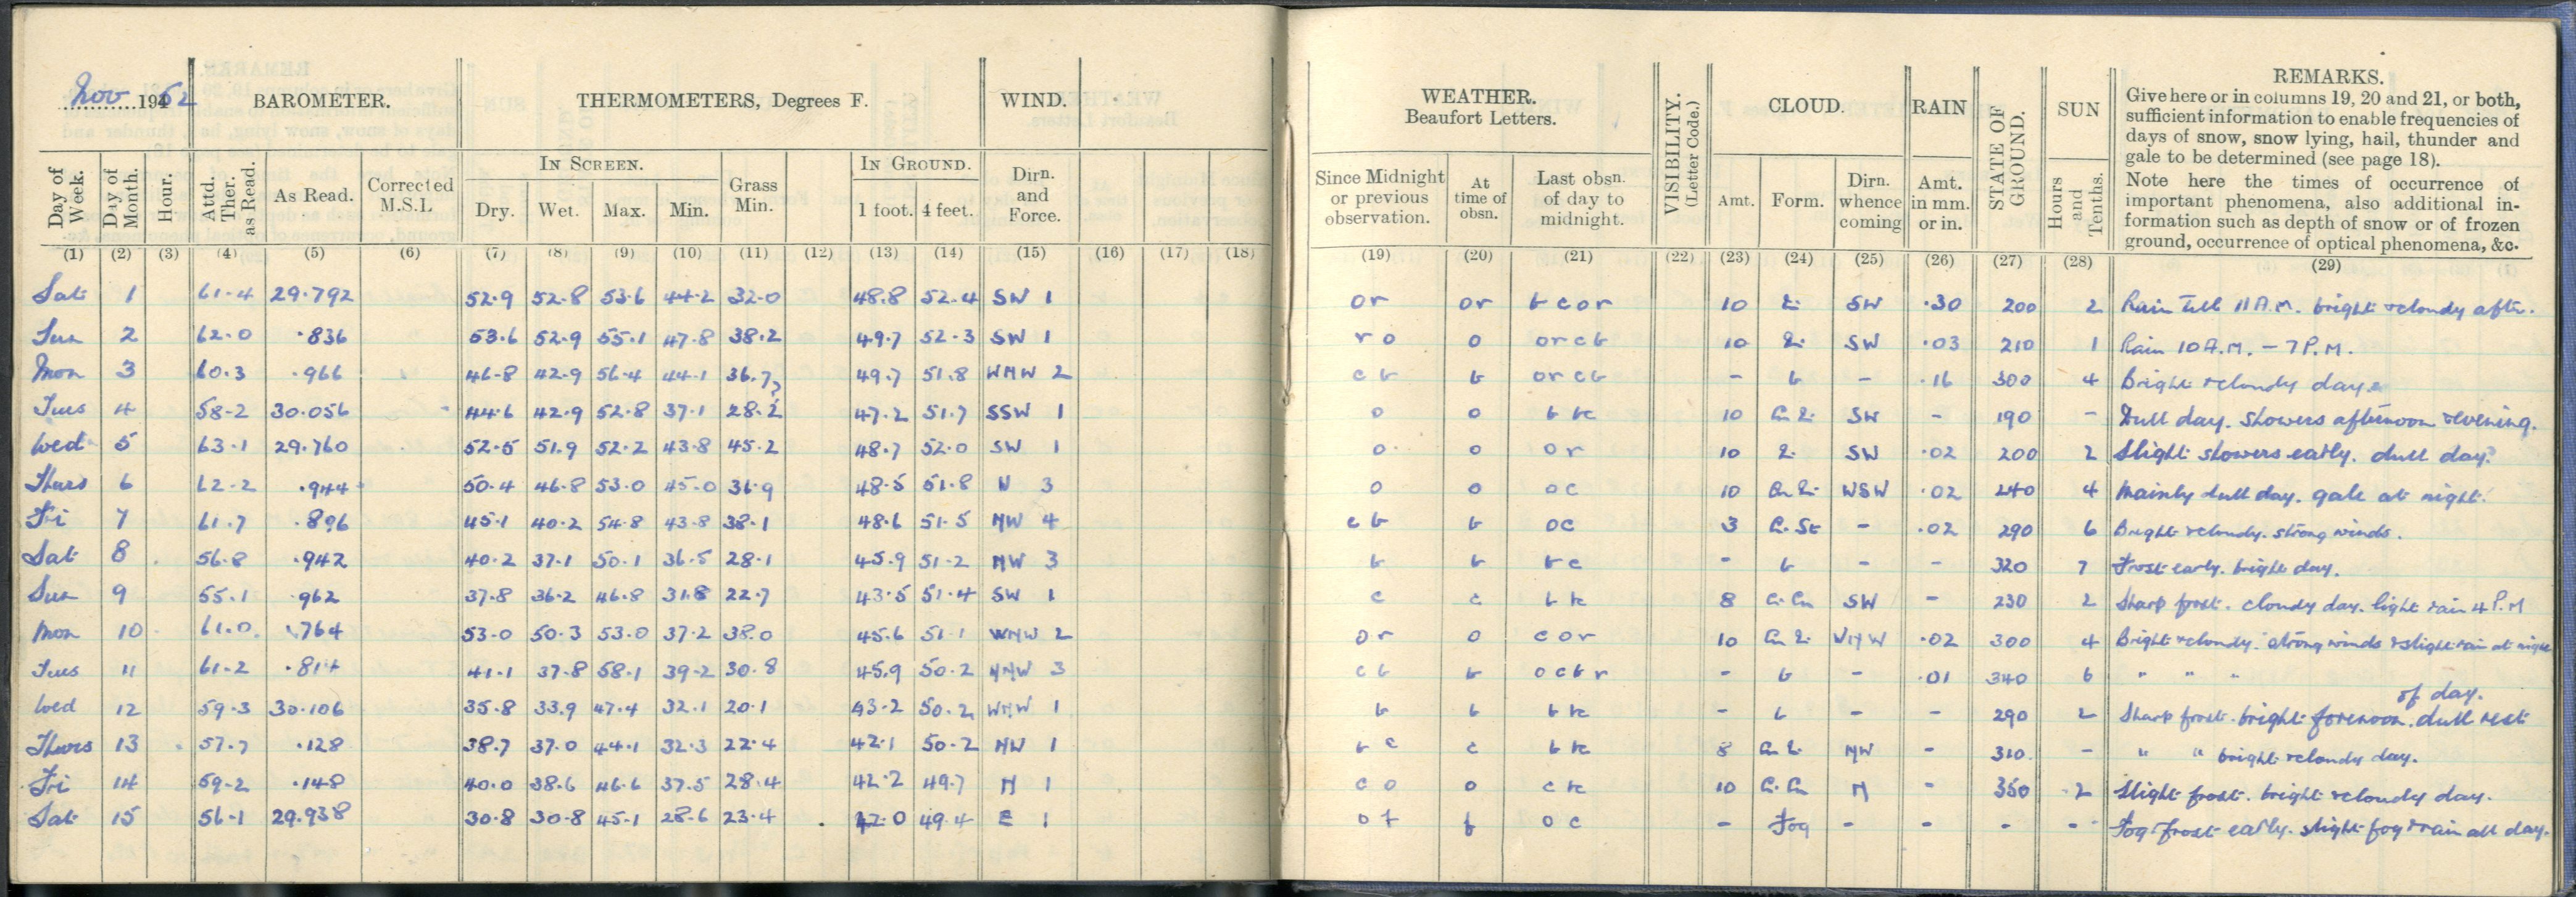 Nov 1952
BAROMETER. THERMOMETERS, Degrees F. WIND.
Day of Week. Day of Month. Hour. Attd. Ther. as Read. As Read. Corrected M.S.L IN SCREEN. Dry. Wet. Max. Min. Grass Min. IN GROUND. 1 foot. 4 feet. Dirn. and Force.
(1) (2) (3) (4) (5) (6) (7) (8) (9) (10) (11) (12) (13) (14) (15) (16) (17) (18)
Sat 1 61.4 29.792 52.9 52.8 53.6 44.2 32.0 48.8 52.4 SW 1
Sun 2 62.0 .836 53.6 52.9 55.1 47.8 38.2 49.7 52.3 SW 1
Mon 3 60.3 .966 46.8 42.9 56.4 44.1 36.7 49.7 51.8 WNW 2
Tues 4 58.2 30.056 44.6 42.9 52.8 37.1 28.2 47.2 51.7 SSW 1
Wed 5 63.1 29.760 52.5 51.9 52.2 43.8 45.2 48.7 52.0 SW 1
Thurs 6 62.2 .944 50.4 46.8 53.0 45.0 36.9 48.5 51.8 W 3
Fri 7 61.7 .896 45.1 40.2 54.8 43.8 38.1 48.6 51.5 NW 4
Sat 8 56.8 .942 40.2 37.1 50.1 36.5 28.1 45.9 51.2 NW 3
Sun 9 55.1 .962 37.8 36.2 46.8 31.8 22.7 43.5 51.4 SW 1
Mon 10 61.0 .764 53.0 50.3 53.0 37.2 38.0 45.6 51.1 WNW 2
Tues 11 61.2 .814 41.1 37.8 58.1 39.2 30.8 45.9 50.2 NNW 3
Wed 12 59.3 30.106 35.8 33.9 47.4 32.1 20.1 43.2 50.2 WNW 1
Thurs 13 57.7 .128 38.7 37.0 44.1 32.3 22.4 42.1 50.2 NW 1
Fri 14 59.2 .148 40.0 38.6 46.6 37.5 28.4 42.2 49.7 N 1
Sat 15 56.1 29.938 30.8 30.8 45.1 28.6 23.4 42.0 49.4 E 1
WEATHER. Beaufort Letters. VISIBILITY. (Letter Code.) CLOUD. RAIN STATE OF GROUND. SUN REMARKS.
Give here or in columns 19, 20 and 21, or both,
sufficient information to enable frequencies of
days of snow, snow lying, hail, thunder and
gale to be determined (see page 18).
Note here the times of occurrence of
important phenomena, also additional in-
formation such as depth of snow or of frozen
ground, occurrence of optical phenomena, &c.
Since Midnight or previous observation. At time of obsn. Last obsn. of day to midnight. Amt. Form. Dirn. whence coming Amt. in mm. or in. Hours and Tenths.
(19) (20) (21) (22) (23) (24) (25) (26) (27) (28) (29)
or or bcor 10 SW .30 200 2 Rain till 11 A.M. bright & cloudy after.
ro o orcb 10 SW .03 210 1 Rain 10 A.M. - 7 P.M.
cb b orcb - b - .16 300 4 Bright & cloudy day
o o 10 SW - 190 - Dull day. showers afternoon & evening.
o o or 10 SW .02 200 2 Slight showers early. dull day.
o o oc 10 WSW .02 240 4 Mainly dull day. gale at night.
cb b oc 3 - .02 290 6 Bright & cloudy. strong winds.
b b bc - b - - 320 7 Frost early. bright day.
c c 8 SW - 230 2 Sharp frost. cloudy day. light rain 4 P.M
or o cor 10 WNW .02 300 4 Bright & cloudy. strong winds & slight rain at night
cb b ocbr - b - .01 340 6 " " "
b b - b - - 290 2 Sharp frost. bright forenoon. dull rest of day.
bc c 8 NW - 310 - " " bright & cloudy day.
co o 10 N - 350 2 Slight frost. bright & cloudy day.
of f oc - Fog - - - - Fog. frost early. slight fog & rain all day.